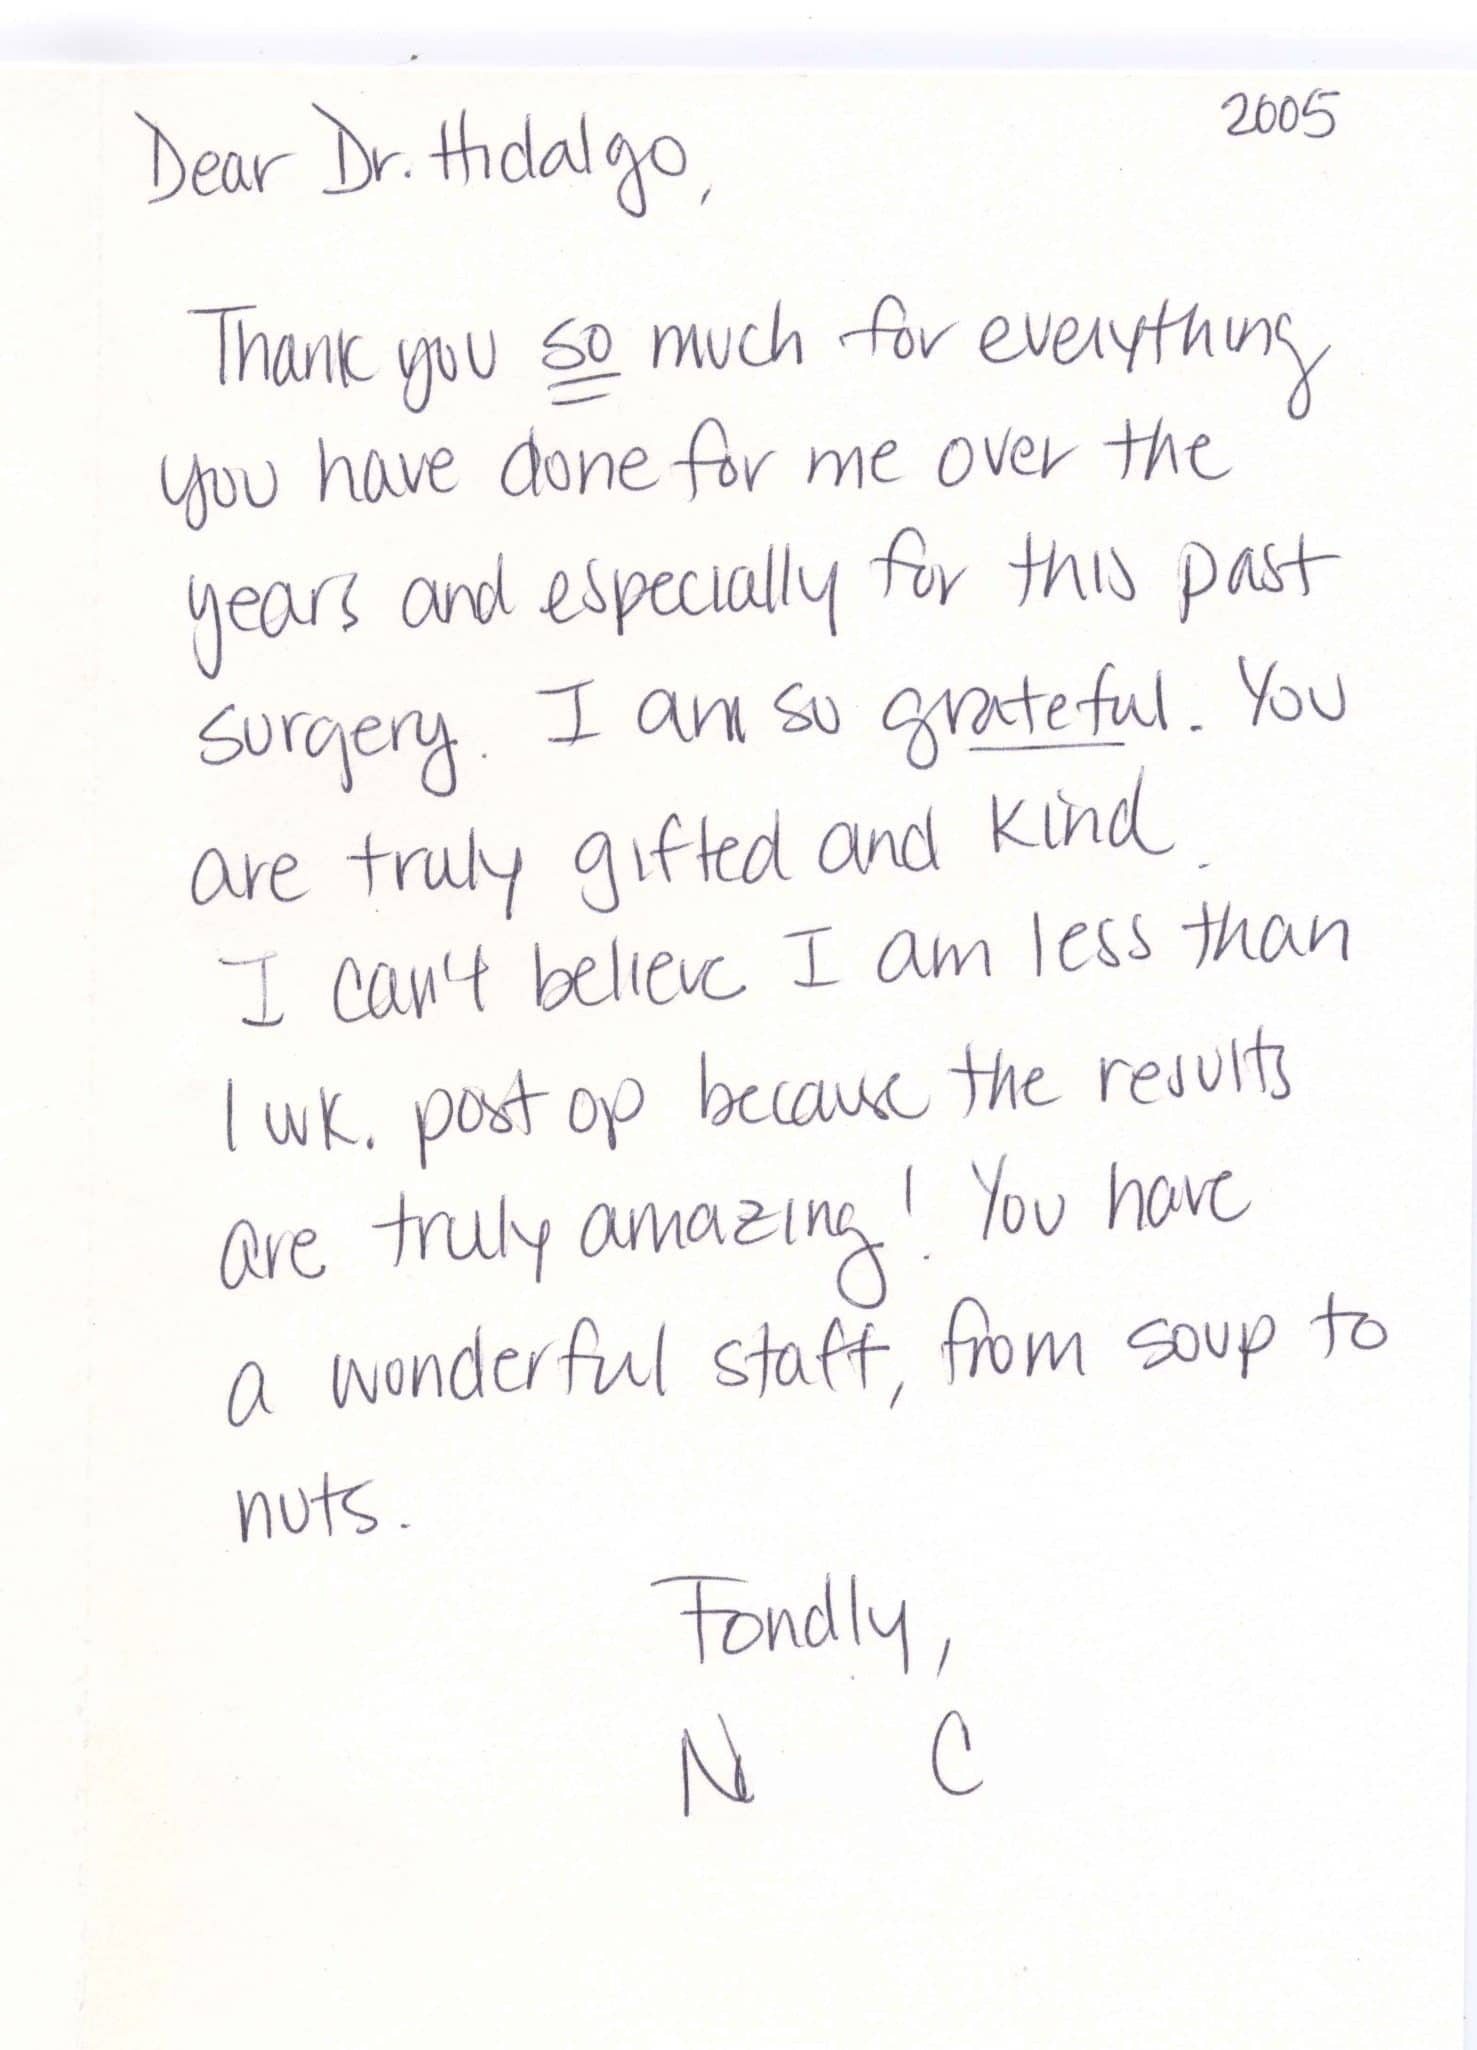 2005
Dear Dr. Hidalgo,
Thank you so much for everything
you have done for me over the
years and especially for this past
surgery. I am so grateful. You
are truly gifted and kind.
I can't believe I am less than
1 wk. post op because the results
are truly amazing! You have
a wonderful staff, from soup to
nuts.
Fondly,
N C